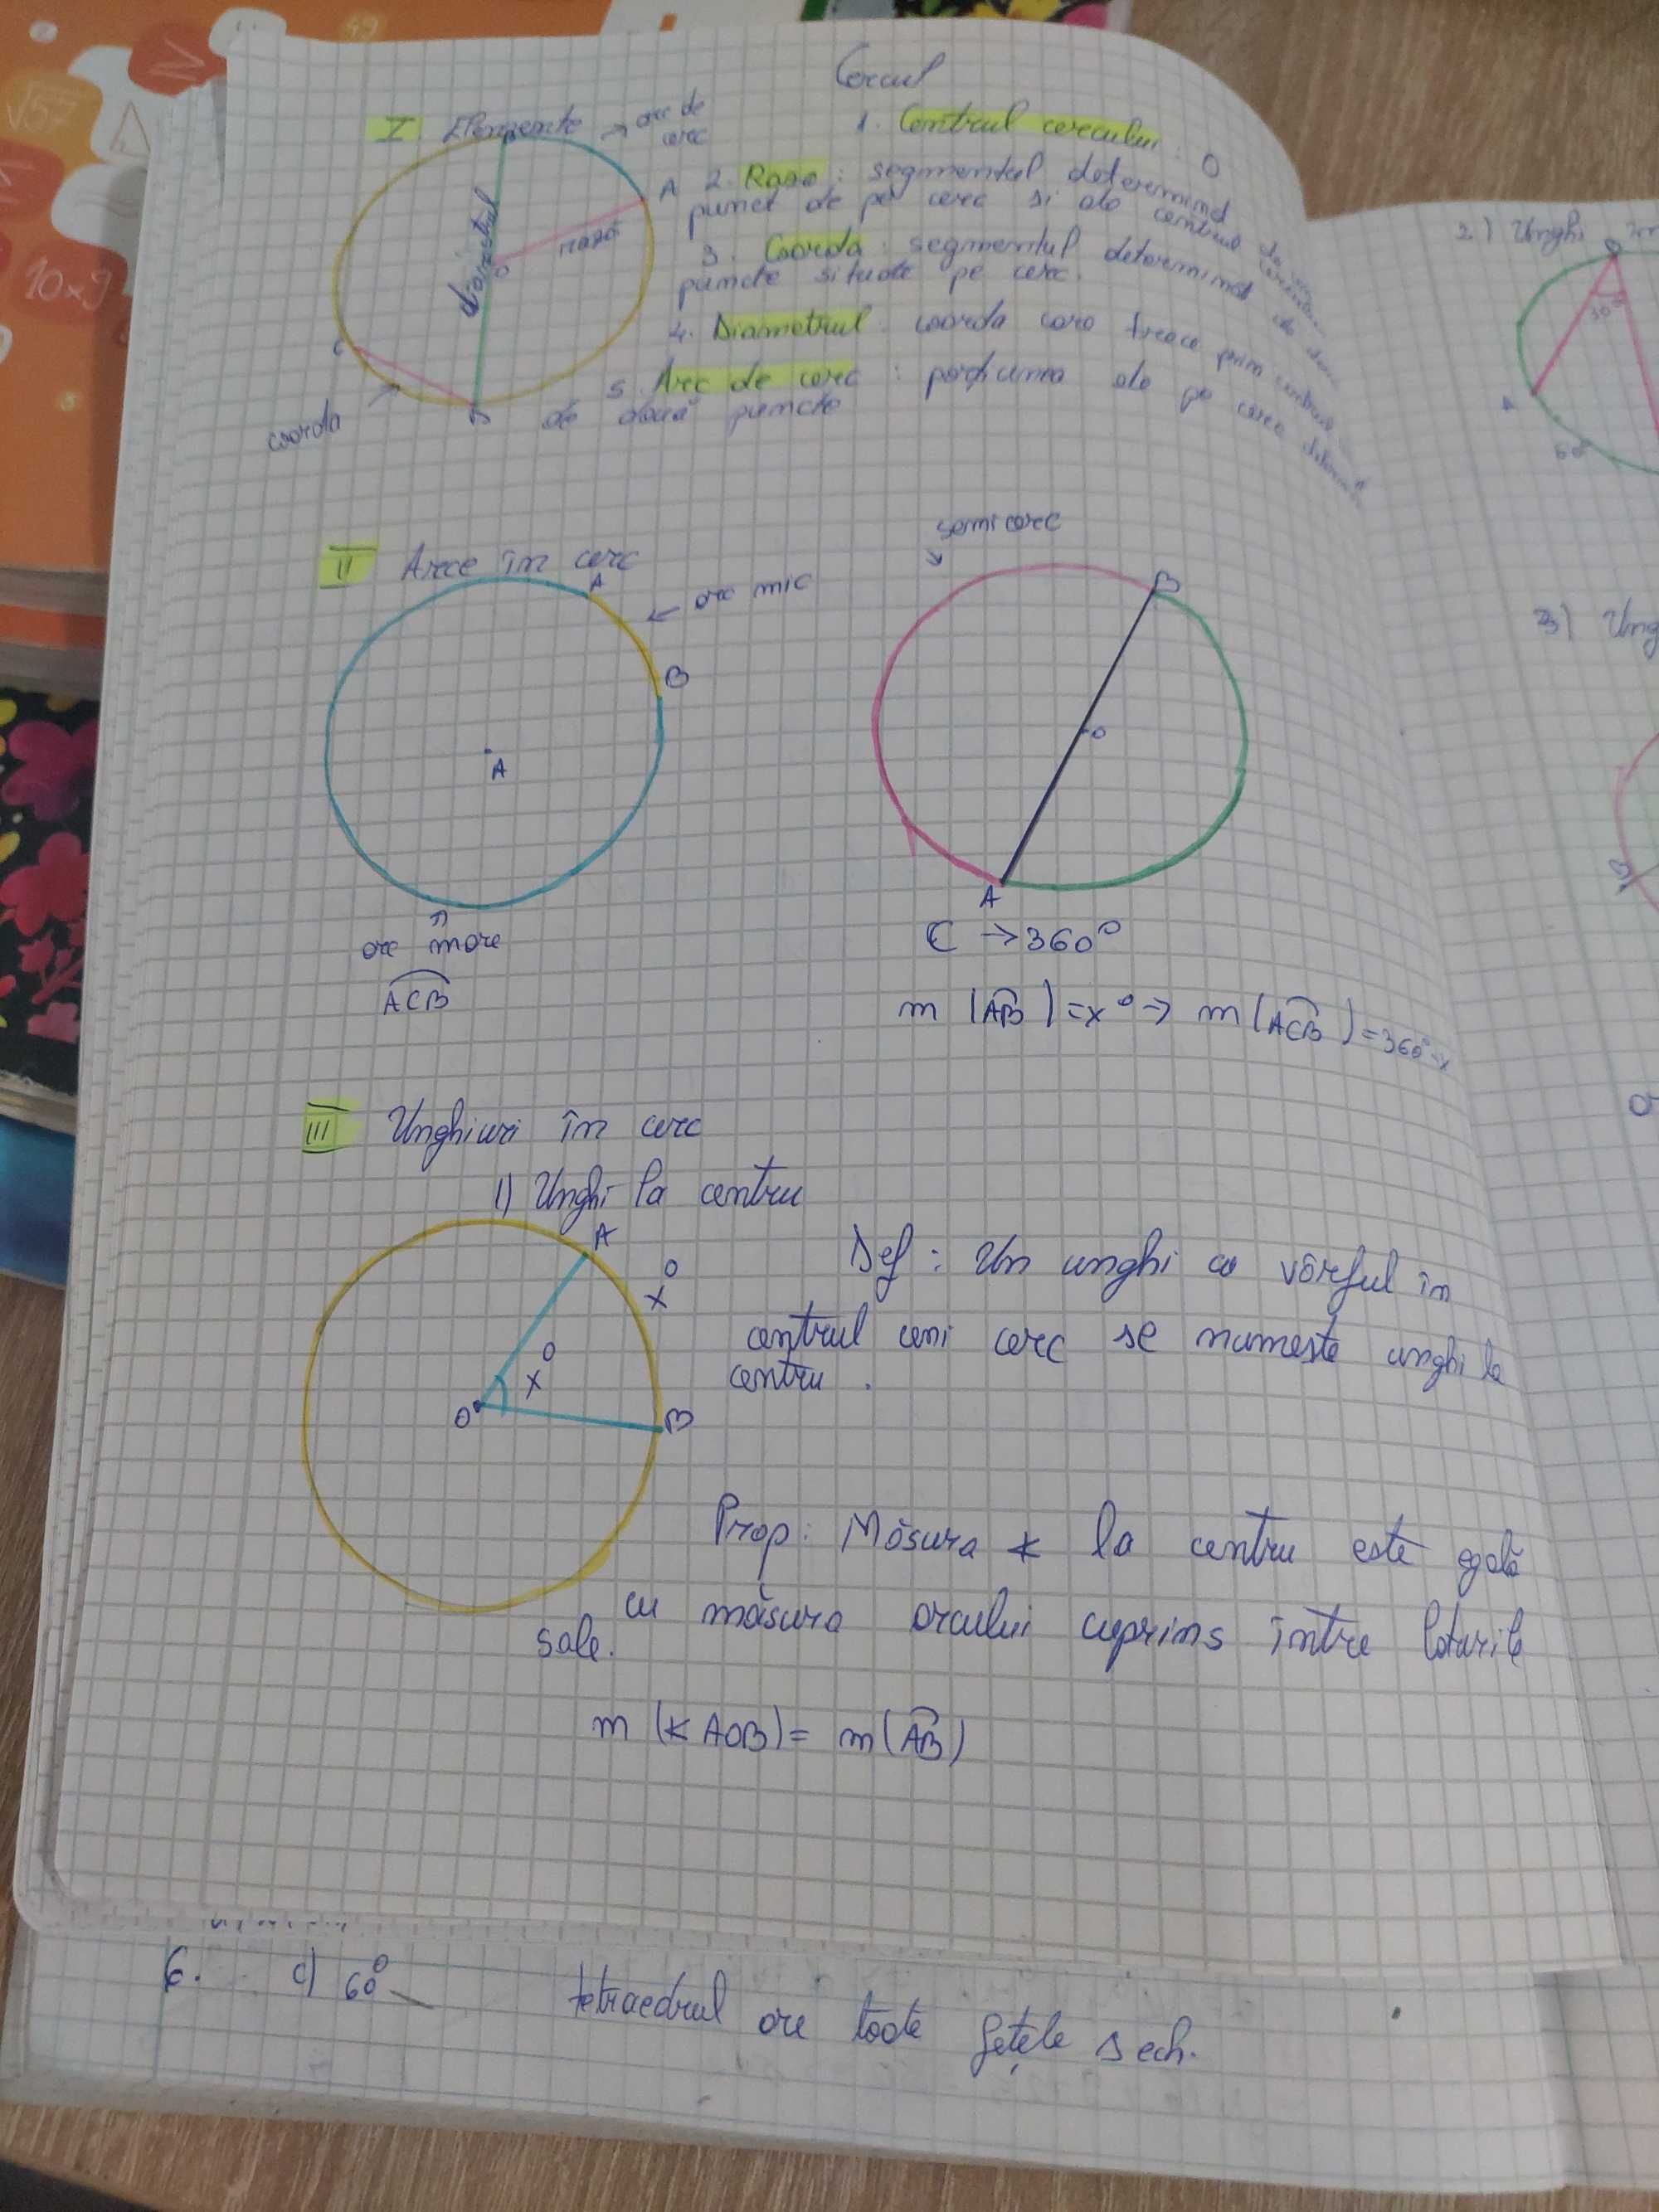 Cercul
I. Elemente
→ arc de
cerc
1. Centrul cercului : O
A 2. Raza : segmentul determinat de un
punct de pe cerc si de centrul cercului
3. Coarda : segmentul determinat de două
puncte situate pe cerc.
4. Diametrul : coarda care trece prin centrul
5. Arc de cerc : porțiunea de pe cerc determinată
de două puncte
diametrul
rază
O
B
C
coarda
II Arce în cerc
A
← arc mic
B
A
arc mare
ACB
semicerc
B
O
A
C → 360°
m (AB) = x° → m (ACB) = 360° - x
III Unghiuri în cerc
1) Unghi la centru
A
x°
x°
O
B
Def : Un unghi cu vârful în
centrul uni cerc se numeste unghi la
centru.
Prop: Măsura ∢ la centru este egală
cu măsura arcului cuprins între laturile
sale.
m (∢ AOB) = m (AB)
6. c) 60°
tetraedrul are toate fețele Δ ech.
2) Unghi în
30°
A
60°
3) Ung
B
√57
49
10x9